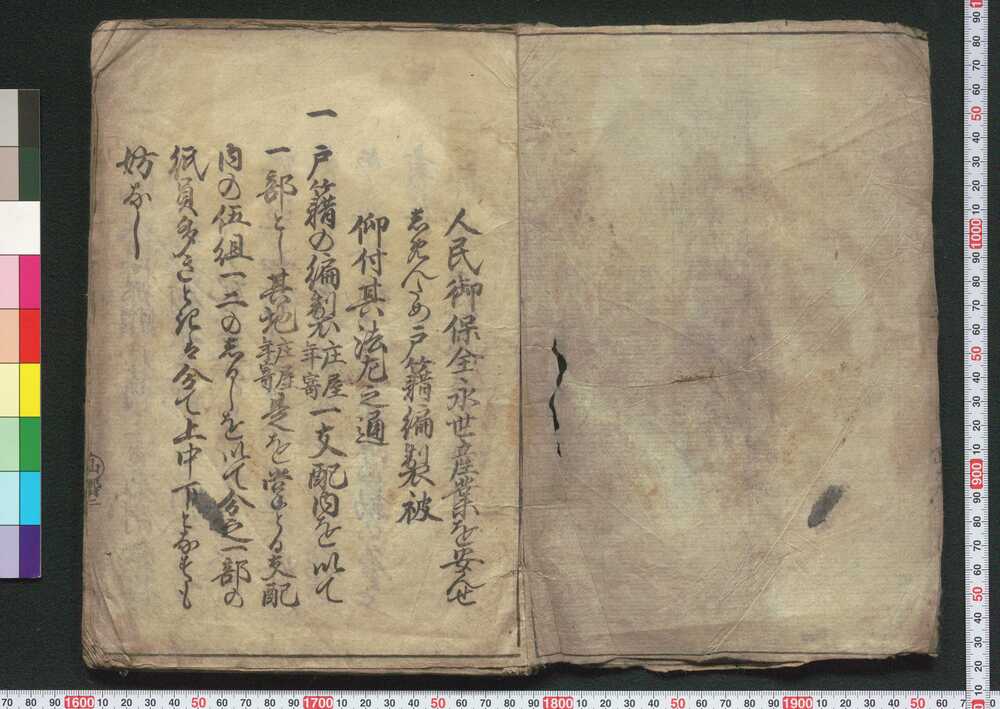 人民御保全永世産業を安んせ
志めんため戸籍編製被
仰付其法左之通
一
戸籍の編製庄屋年寄一支配内を以て
一部とし其地庄屋年寄是を掌とる支配
内の伍組一二の志るしを以て分之一部の
紙員多きときは分て上中下となすも
妨なし